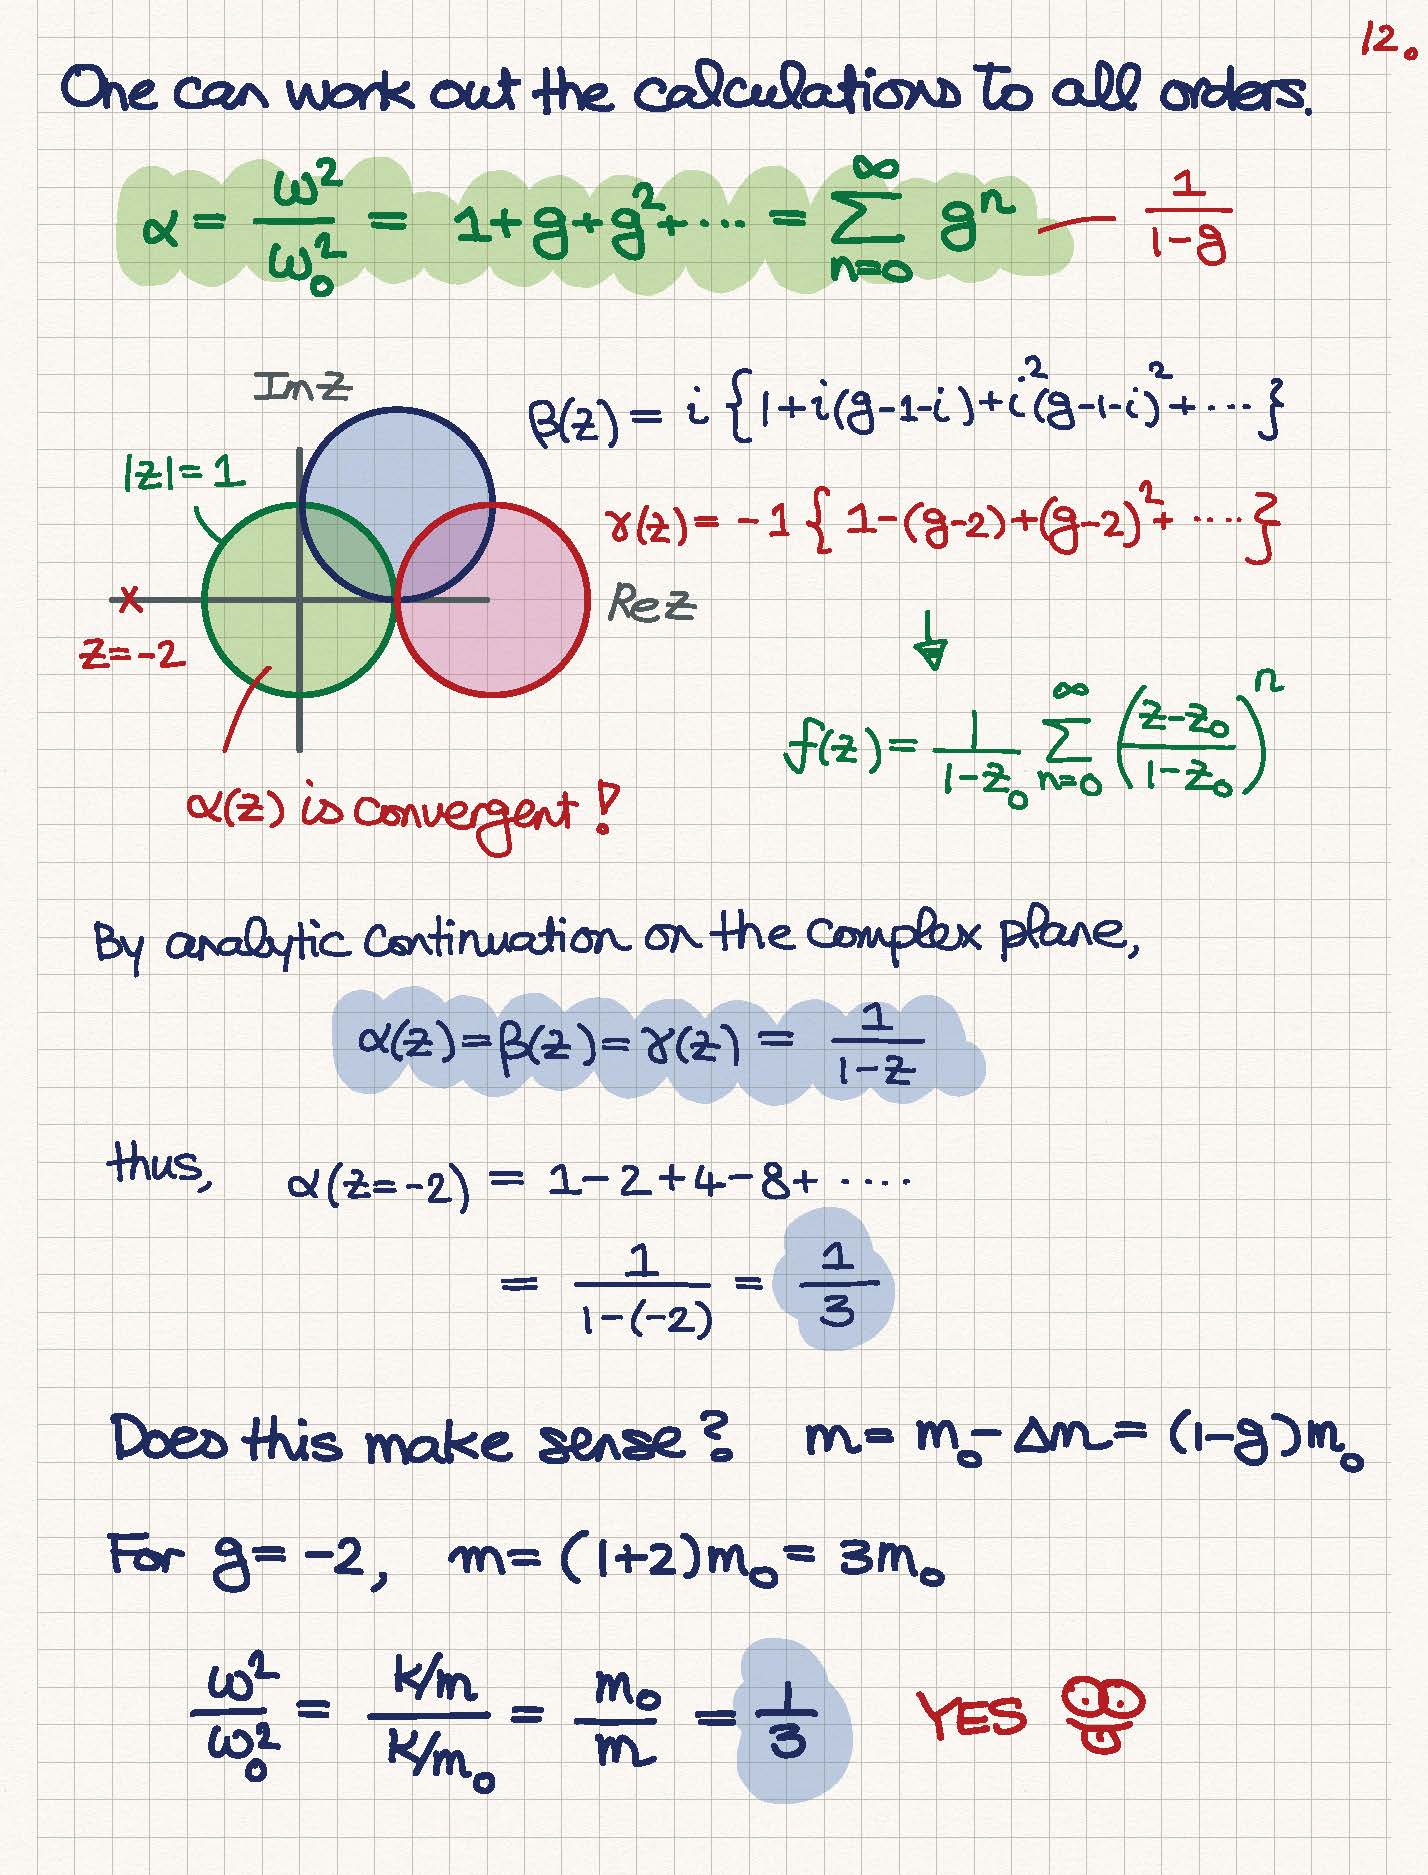 12.
One can work out the calculations to all orders.
α = ω²/ω₀² = 1+g+g²+··· = ∑_{n=0}^{∞} gⁿ — 1/(1-g)
Im z
β(z) = i {1+i(g-1-i)+i²(g-1-i)²+····}
|z|=1
γ(z) = -1 {1-(g-2)+(g-2)²+····}
Re z
x
z=-2
↓
f(z) = 1/(1-z₀) ∑_{n=0}^{∞} ((z-z₀)/(1-z₀))ⁿ
α(z) is convergent!
By analytic continuation on the complex plane,
α(z)=β(z)=γ(z) = 1/(1-z)
thus, α(z=-2) = 1-2+4-8+ ····
= 1/(1-(-2)) = 1/3
Does this make sense? m = m₀-Δm = (1-g)m₀
For g=-2, m=(1+2)m₀ = 3m₀
ω²/ω₀² = (k/m)/(k/m₀) = m₀/m = 1/3 YES